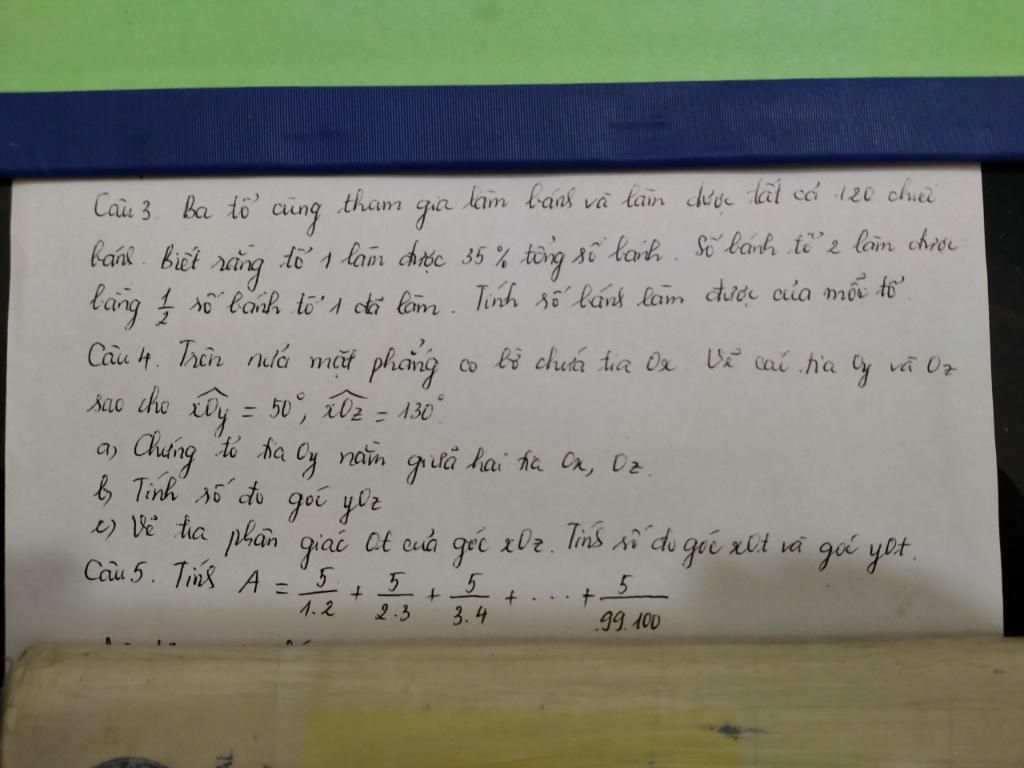 Câu 3. Ba tổ cùng tham gia làm bánh và làm được tất cả 120 chiếc
bánh. Biết rằng tổ 1 làm được 35% tổng số bánh. Số bánh tổ 2 làm được
bằng 1/2 số bánh tổ 1 đã làm. Tính số bánh làm được của mỗi tổ.
Câu 4. Trên nửa mặt phẳng có bờ chứa tia Ox. Vẽ các tia Oy và Oz
sao cho xOy = 50°, xOz = 130°.
a) Chứng tỏ tia Oy nằm giữa hai tia Ox, Oz.
b) Tính số đo góc yOz
c) Vẽ tia phân giác Ot của góc xOz. Tính số đo góc xOt và góc yOt.
Câu 5. Tính A = 5/1.2 + 5/2.3 + 5/3.4 + .... + 5/99.100